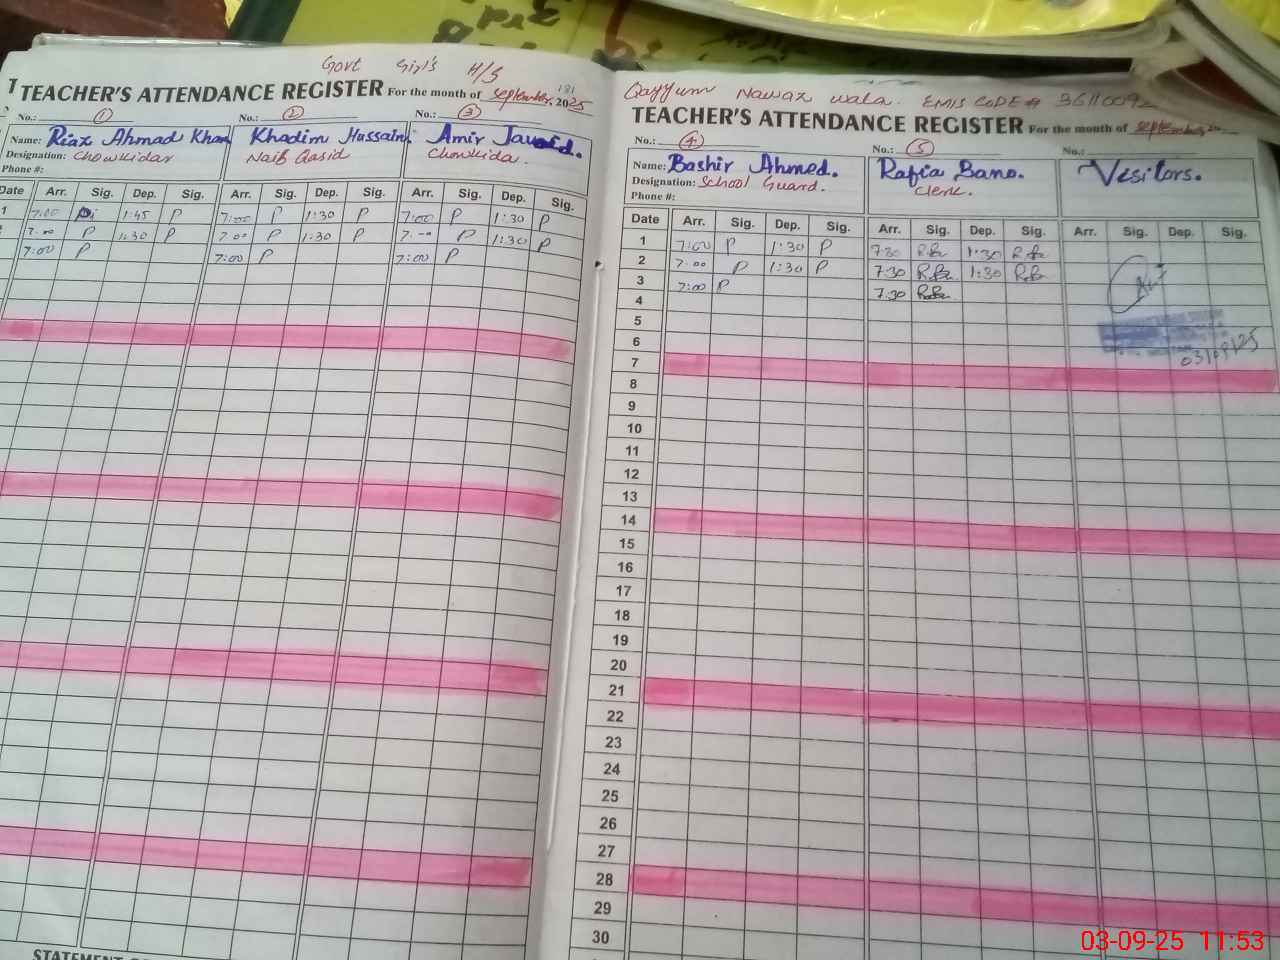 Govt Girl's H/S
TEACHER'S ATTENDANCE REGISTER For the month of September, 2025
No.: 1 No.: 2 No.: 3
Name: Riaz Ahmad Khan Khadim Hussain Amir Javaid.
Designation: Chowkidar Naib Qasid Chowkida.
Phone #:
Date Arr. Sig. Dep. Sig. Arr. Sig. Dep. Sig. Arr. Sig. Dep. Sig.
1 7:00 1:45 P 7:00 P 1:30 P 7:00 P 1:30 P
7:00 P 1:30 P 7:00 P 1:30 P 7:00 P 1:30 P
7:00 P 7:00 P 7:00 P
Qayyum Nawaz wala. EMIS CODE #
TEACHER'S ATTENDANCE REGISTER For the month of September
No.: 4 No.: 5 No.:
Name: Bashir Ahmed. Rafia Bano. Visitors.
Designation: School Guard. Clerk.
Phone #:
Date Arr. Sig. Dep. Sig. Arr. Sig. Dep. Sig. Arr. Sig. Dep. Sig.
1 7:00 P 1:30 P 7:30 1:30
2 7:00 P 1:30 P 7:30 1:30
3 7:00 P 7:30
4
5
6
7
8
9
10
11
12
13
14
15
16
17
18
19
20
21
22
23
24
25
26
27
28
29
30
03-09-25 11:53